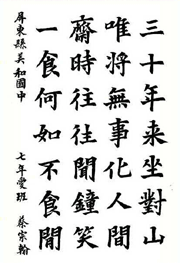 三十年来坐對山
唯將無事化人間
齋時往往聞鐘笑
一食何如不食閒
屏東縣美和國中 七年愛班 蔡宗翰